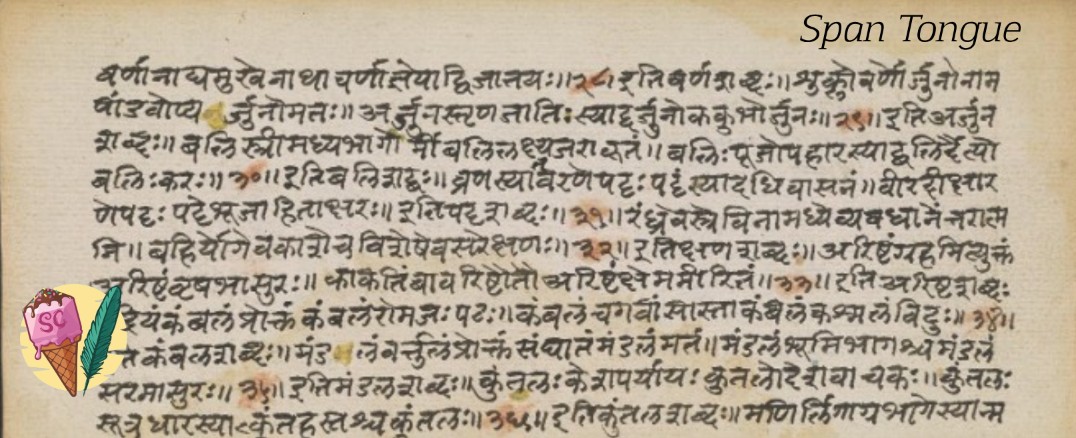 Span Tongue
वर्णानाद्यमुखेनाथा वर्णालेपाद्विजातयः॥२८॥ इतिवर्णशब्दः॥ शुक्लोवर्णोर्जुनोनाम
पांडवोप्य र्जुनोमतः॥ अर्जुनस्तृणजातिः स्याद्दर्जुनोककुभोर्जुनः॥२९॥ इति अर्जुन
शब्दः॥ बलि स्त्रीमध्यभागो बलिलक्ष्य जरा बलिः पूजोपहारस्याद्बलिर्दैत्यो
बलिःकरः॥३०॥ इतिबलिशब्दः॥ व्रणस्यावरणेपट्टः पट्टंस्यादधिवासनं॥ वीरदीक्षार
णेपट्टः पट्टेभूजाहिताक्षरः॥ इतिपट्टशब्दः॥३१॥ रंध्रेवस्त्रेविनामध्येव्यवधानेन्तरात्म
नि॥ बहिर्योगेवकाशेचविशेषेवसरेक्षणः॥३२॥ इतिक्षणशब्दः॥ अरिष्टंगृहमित्युक्तं
अरिष्टंवृषभासुरः॥ काकनिंबावरिष्टोतौ अरिष्टंक्षेममीरितं॥३३॥ इतिअरिष्टशब्दः
कंबलंप्रोक्तं कंबलंरोमजः पटः॥ कंबलंचगवांसास्ना कंबलंकश्मलंविदुः॥३४॥
तकंबलशब्दः॥ मंड लंवर्त्तुलंप्रोक्तं संघातंमंडलंमतं॥ मंडलंभूमिभागश्च मंडलं
सरमासुरः॥३५॥ इतिमंडलशब्दः॥ कुंतलः केशपर्यायः कुंतलोदेशवाचकः॥ कुंतलः
सूत्रधारस्यात् कुंतहस्तश्च कुंतलः॥३६॥ इतिकुंतलशब्दः॥ मणिर्लिंगाग्रभागेस्यान्म
SC